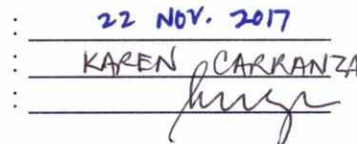 : 22 NOV. 2017
: KAREN CARRANZA
: